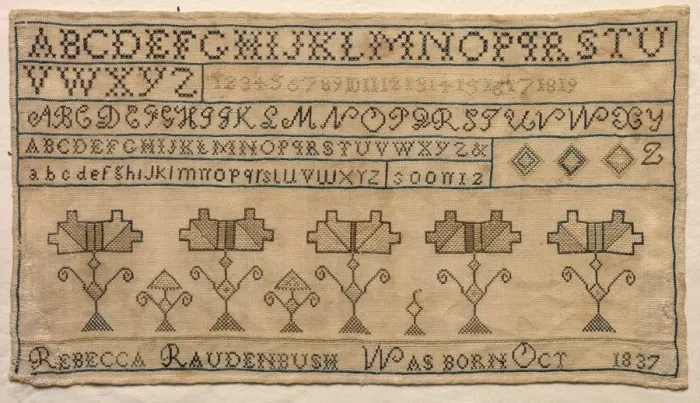 ABCDEFGHIJKLMNOPQRSTU
VWXYZ 12345678910111213141516171819
ABCDEFGHIJKLMNOPQRSTUVWXY
Z
ABCDEFGHIJKLMNOPQRSTUVWXYZ&
abcdefghiJklmnopqrstUVWXYZ
REBECCA RAUDENBUSH WAS BORN OCT 1837